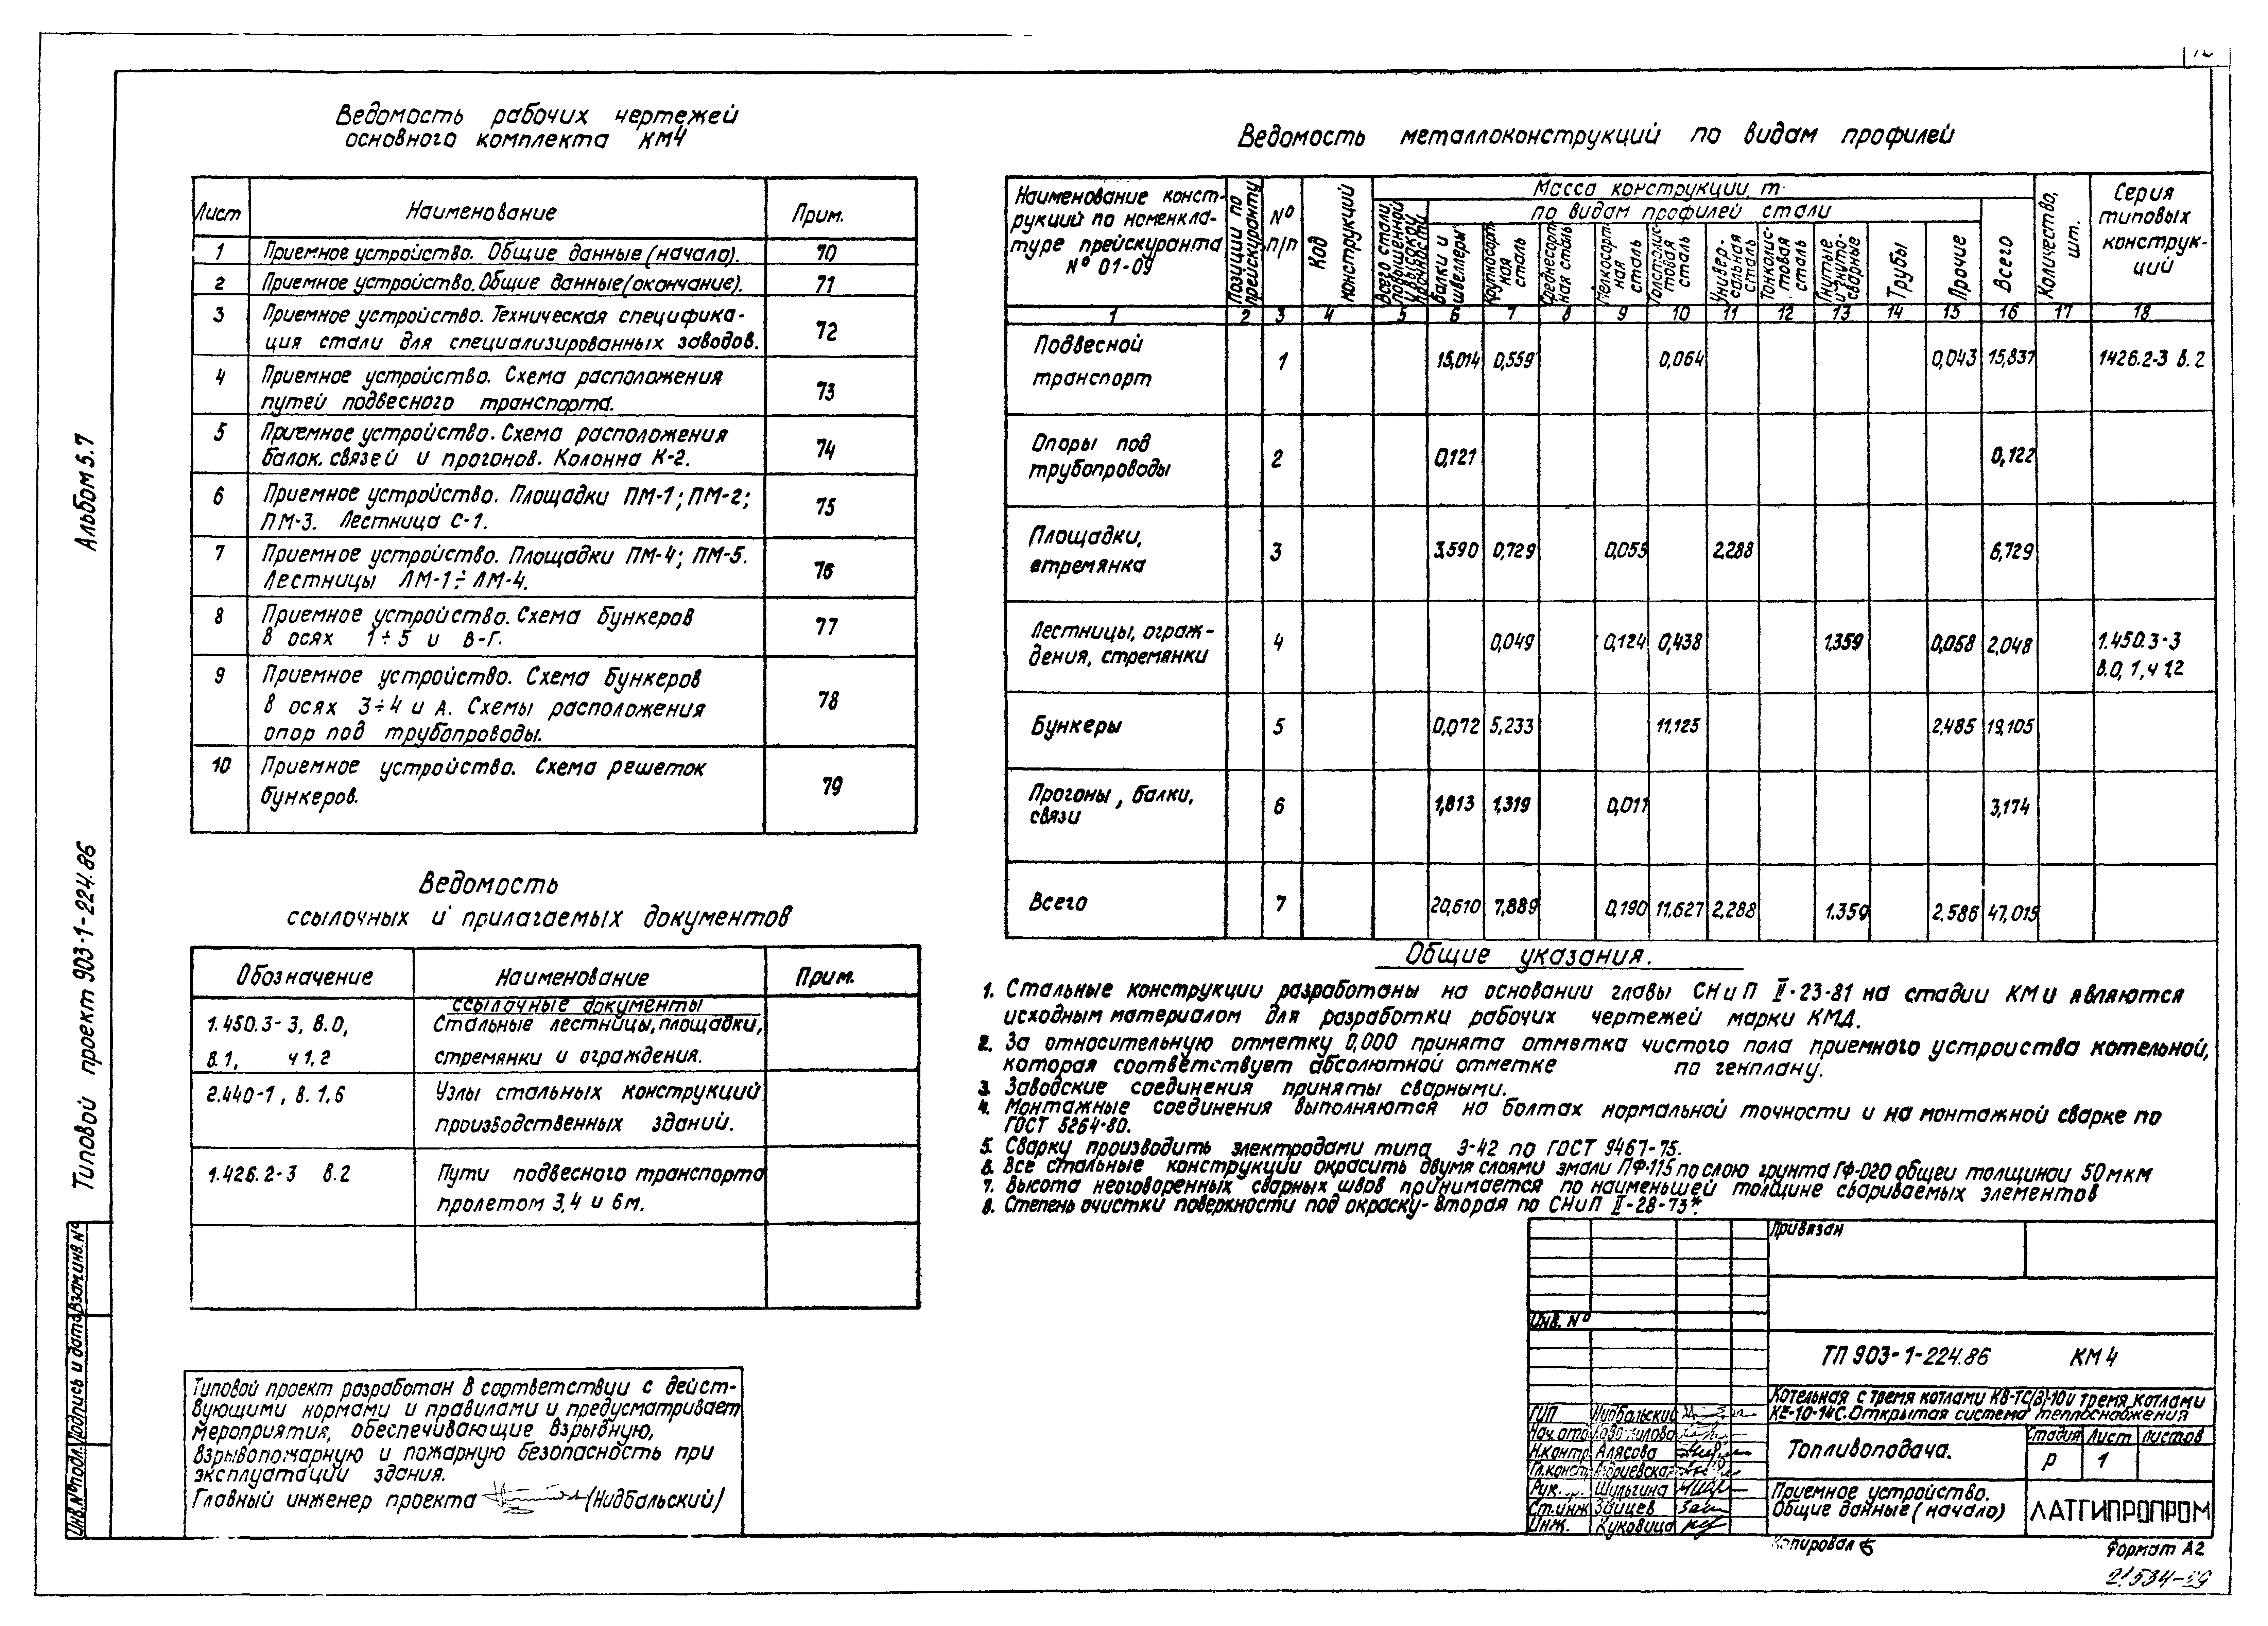 Альбом 5.7
Типовой проект 903-1-224.86
Взам.инв.№
Подпись и дата
Инв.№подл.
Ведомость рабочих чертежей
основного комплекта КМ4
Лист Наименование Прим.
1 Приемное устройство. Общие данные (начало). 70
2 Приемное устройство. Общие данные (окончание). 71
3 Приемное устройство. Техническая специфика-
ция стали для специализированных заводов. 72
4 Приемное устройство. Схема расположения
путей подвесного транспорта. 73
5 Приемное устройство. Схема расположения
балок, связей и прогонов. Колонна К-2. 74
6 Приемное устройство. Площадки ПМ-1; ПМ-2;
ПМ-3. Лестница С-1. 75
7 Приемное устройство. Площадки ПМ-4; ПМ-5.
Лестницы ЛМ-1÷ЛМ-4. 76
8 Приемное устройство. Схема бункеров
в осях 1÷5 и В-Г. 77
9 Приемное устройство. Схема бункеров
в осях 3÷4 и А. Схемы расположения
опор под трубопроводы. 78
10 Приемное устройство. Схема решеток
бункеров. 79
Ведомость
ссылочных и прилагаемых документов
Обозначение Наименование Прим.
ссылочные документы
1.450.3-3, в.0, Стальные лестницы, площадки,
в.1, ч 1,2 стремянки и ограждения.
2.440-1, в. 1.6 Узлы стальных конструкций
производственных зданий.
1.426.2-3 в.2 Пути подвесного транспорта
пролетом 3,4 и 6м.
Типовой проект разработан в соответствии с дейст-
вующими нормами и правилами и предусматривает
мероприятия, обеспечивающие взрывную,
взрывопожарную и пожарную безопасность при
эксплуатации здания.
Главный инженер проекта (Нидбальский)
Ведомость металлоконструкций по видам профилей
Наименование конст-
рукций по номенкла-
туре прейскуранта
№ 01-09
Позиции по прейскуранту
№ п/п
Код конструкций
Масса конструкции т.
по видам профилей стали
Всего стали повышенной и высокой прочности
Балки и швеллеры
Крупносорт-ная сталь
Среднесорт-ная сталь
Мелкосорт-ная сталь
Толстолис-товая сталь
Универ-сальная сталь
Тонколис-товая сталь
Гнутые и гнуто-сварные
Трубы
Прочие
Всего
Количество, шт.
Серия
типовых
конструк-
ций
1 2 3 4 5 6 7 8 9 10 11 12 13 14 15 16 17 18
Подвесной
транспорт 1 15,014 0,559 0,064 0,043 15,837 1426.2-3 в.2
Опоры под
трубопроводы 2 0,121 0,122
Площадки,
стремянка 3 3.590 0,729 0,055 2.288 6,729
Лестницы, ограж-
дения, стремянки 4 0,049 0,124 0,438 1.359 0,058 2,048 1.450.3-3
в.0, 1, ч 1,2
Бункеры 5 0,072 5,233 11,125 2.485 19,105
Прогоны, балки,
связи 6 1,813 1,319 0,011 3,174
Всего 7 20,610 7,889 0,190 11.627 2,288 1.359 2.586 47,015
Общие указания.
1. Стальные конструкции разработаны на основании главы СНиП II-23-81 на стадии КМ и являются
исходным материалом для разработки рабочих чертежей марки КМД.
2. За относительную отметку 0,000 принята отметка чистого пола приемного устройства котельной,
которая соответствует абсолютной отметке по генплану.
3. Заводские соединения приняты сварными.
4. Монтажные соединения выполняются на болтах нормальной точности и на монтажной сварке по
ГОСТ 5264-80.
5. Сварку производить электродами типа Э-42 по ГОСТ 9467-75.
6. Все стальные конструкции окрасить двумя слоями эмали ПФ-115 по слою грунта ГФ-020 общей толщиной 50 мкм
7. Высота неоговоренных сварных швов принимается по наименьшей толщине свариваемых элементов
8. Степень очистки поверхности под окраску-вторая по СНиП II-28-73*.
Привязан
Инв. №
ТП 903-1-224.86 КМ 4
Котельная с тремя котлами КВ-ТС(В)-10 и тремя котлами
КЕ-10-14С. Открытая система теплоснабжения
ГИП Нидбальский
Нач.отд
Н.контр. Алясова
Гл.констр Андриевская
Рук. Шульгина
Ст.инж Зайцев
Инж. Куковица
Топливоподача.
Стадия Лист Листов
Р 1
Приемное устройство.
Общие данные (начало)
ЛАТГИПРОПРОМ
Копировал
Формат А2